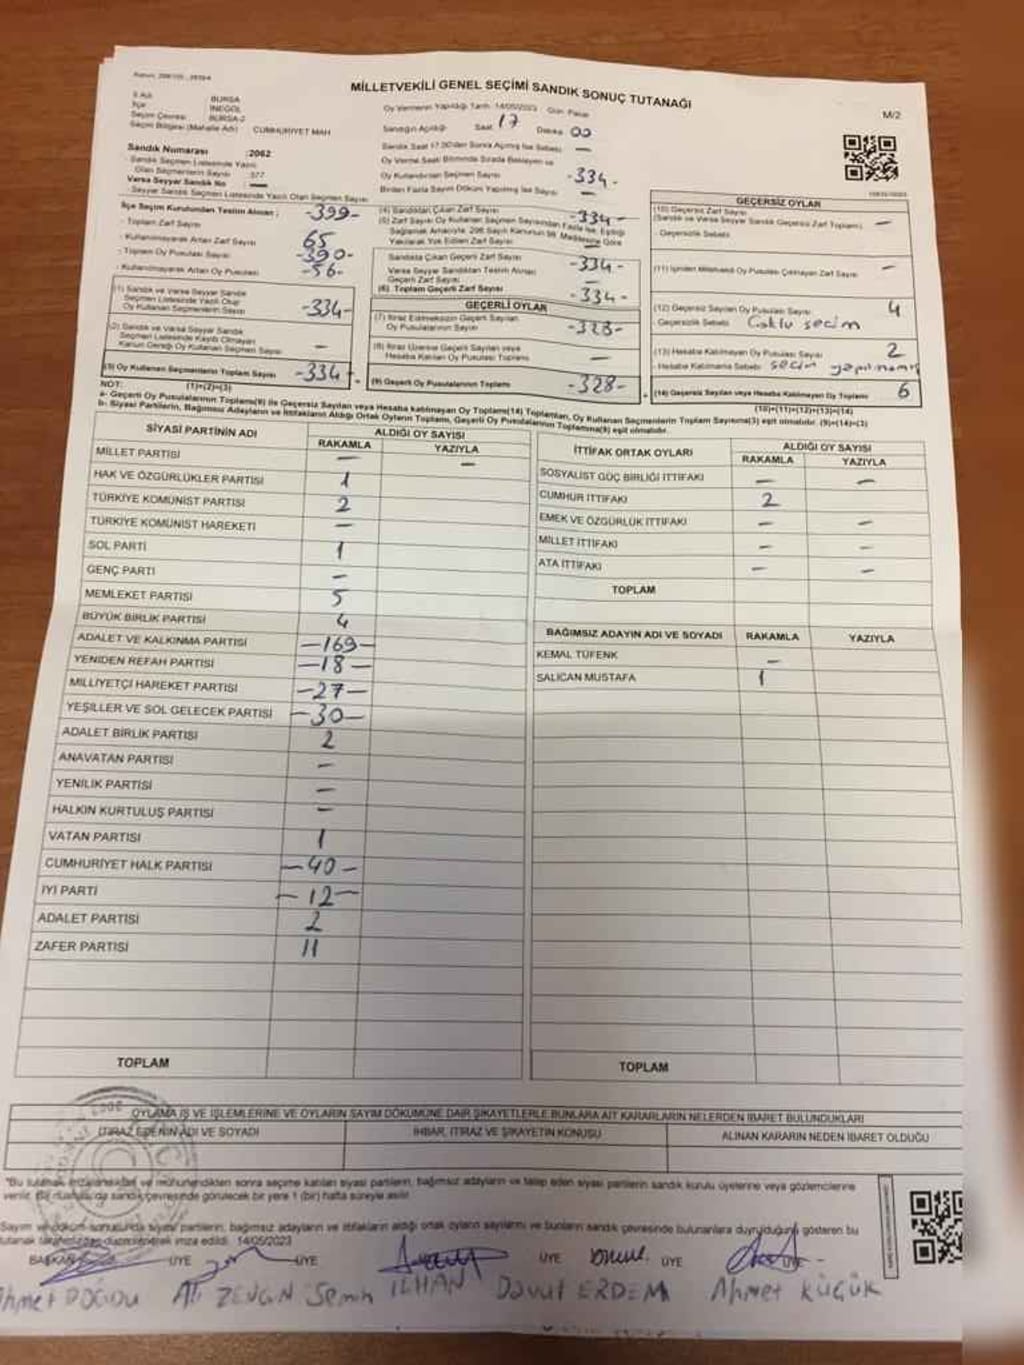 MİLLETVEKİLİ GENEL SEÇİMİ SANDIK SONUÇ TUTANAĞI
M/2
İl Adı : BURSA
İlçe : İNEGÖL
Seçim Çevresi : BURSA-2
Seçim Bölgesi (Mahalle Adı) : CUMHURİYET MAH
Oy Vermenin Yapıldığı Tarih: 14/05/2023 Gün: Pazar
Sandığın Açıldığı Saat 17 Dakika 00
Sandık Numarası : 2062
- Sandık Seçmen Listesinde Yazılı Olan Seçmenlerin Sayısı : 377
Varsa Seyyar Sandık No : —
- Seyyar Sandık Seçmen Listesinde Yazılı Olan Seçmen Sayısı
İlçe Seçim Kurulundan Teslim Alınan ;
- Toplam Zarf Sayısı -399-
- Kullanılmayarak Artan Zarf Sayısı 65
- Toplam Oy Pusulası Sayısı -390-
- Kullanılmayarak Artan Oy Pusulası -56-
(1) Sandık ve Varsa Seyyar Sandık Seçmen Listesinde Yazılı Olup Oy Kullanan Seçmenlerin Sayısı -334-
(2) Sandık ve Varsa Seyyar Sandık Seçmen Listesinde Kayıtlı Olmayan Kanun Gereği Oy Kullanan Seçmen Sayısı —
(3) Oy Kullanan Seçmenlerin Toplam Sayısı -334-
Sandık Saat 17.00'den Sonra Açılmış İse Sebebi —
Oy Verme Saati Bitiminde Sırada Bekleyen ve Oy Kullandırılan Seçmen Sayısı -334-
Birden Fazla Sayım Döküm Yapılmış İse Sayısı —
(4) Sandıktan Çıkan Zarf Sayısı -334-
(5) Zarf Sayısı Oy Kullanan Seçmen Sayısından Fazla İse, Eşitliği Sağlamak Amacıyla, 298 Sayılı Kanunun 98. Maddesine Göre Yakılarak Yok Edilen Zarf Sayısı —
Sandıkta Çıkan Geçerli Zarf Sayısı -334-
Varsa Seyyar Sandıktan Teslim Alınan Geçerli Zarf Sayısı —
(6) Toplam Geçerli Zarf Sayısı -334-
GEÇERLİ OYLAR
(7) İtiraz Edilmeksizin Geçerli Sayılan Oy Pusulalarının Sayısı -328-
(8) İtiraz Üzerine Geçerli Sayılan veya Hesaba Katılan Oy Pusulası Toplamı —
(9) Geçerli Oy Pusulalarının Toplamı -328-
GEÇERSİZ OYLAR
(10) Geçersiz Zarf Sayısı
(Sandık ve Varsa Seyyar Sandık Geçersiz Zarf Toplamı) —
- Geçersizlik Sebebi
(11) İçinden Milletvekili Oy Pusulası Çıkmayan Zarf Sayısı —
(12) Geçersiz Sayılan Oy Pusulası Sayısı 4
- Geçersizlik Sebebi Çoklu seçim
(13) Hesaba Katılmayan Oy Pusulası Sayısı 2
- Hesaba Katılmama Sebebi seçim yapılmamış
(14) Geçersiz Sayılan veya Hesaba Katılmayan Oy Toplamı 6
NOT: (1)+(2)=(3)
(10)+(11)+(12)+(13)=(14)
a- Geçerli Oy Pusulalarının Toplamı(9) ile Geçersiz Sayılan veya Hesaba katılmayan Oy Toplamı(14) Toplamları, Oy Kullanan Seçmenlerin Toplam Sayısına(3) eşit olmalıdır. (9)+(14)=(3)
b- Siyasi Partilerin, Bağımsız Adayların ve İttifakların Aldığı Ortak Oyların Toplamı, Geçerli Oy Pusulalarının Toplamına(9) eşit olmalıdır.
SİYASİ PARTİNİN ADI ALDIĞI OY SAYISI
RAKAMLA YAZIYLA
MİLLET PARTİSİ — —
HAK VE ÖZGÜRLÜKLER PARTİSİ 1
TÜRKİYE KOMÜNİST PARTİSİ 2
TÜRKİYE KOMÜNİST HAREKETİ —
SOL PARTİ 1
GENÇ PARTİ —
MEMLEKET PARTİSİ 5
BÜYÜK BİRLİK PARTİSİ 4
ADALET VE KALKINMA PARTİSİ —169—
YENİDEN REFAH PARTİSİ —18—
MİLLİYETÇİ HAREKET PARTİSİ —27—
YEŞİLLER VE SOL GELECEK PARTİSİ —30—
ADALET BİRLİK PARTİSİ 2
ANAVATAN PARTİSİ —
YENİLİK PARTİSİ —
HALKIN KURTULUŞ PARTİSİ —
VATAN PARTİSİ 1
CUMHURİYET HALK PARTİSİ —40—
İYİ PARTİ —12—
ADALET PARTİSİ 2
ZAFER PARTİSİ 11
TOPLAM
İTTİFAK ORTAK OYLARI ALDIĞI OY SAYISI
RAKAMLA YAZIYLA
SOSYALİST GÜÇ BİRLİĞİ İTTİFAKI — —
CUMHUR İTTİFAKI 2
EMEK VE ÖZGÜRLÜK İTTİFAKI — —
MİLLET İTTİFAKI — —
ATA İTTİFAKI — —
TOPLAM
BAĞIMSIZ ADAYIN ADI VE SOYADI RAKAMLA YAZIYLA
KEMAL TÜFENK —
SALİCAN MUSTAFA 1
TOPLAM
OYLAMA İŞ VE İŞLEMLERİNE VE OYLARIN SAYIM DÖKÜMÜNE DAİR ŞİKAYETLERLE BUNLARA AİT KARARLARIN NELERDEN İBARET BULUNDUKLARI
İTİRAZ EDENİN ADI VE SOYADI İHBAR, İTİRAZ VE ŞİKAYETİN KONUSU ALINAN KARARIN NEDEN İBARET OLDUĞU
"Bu tutanak imzalandıktan ve mühürlendikten sonra seçime katılan siyasi partilerin, bağımsız adayların ve talep eden siyasi partilerin sandık kurulu üyelerine veya gözlemcilerine
verilir. Bir nüshası da sandık çevresinde görülecek bir yere 1 (bir) hafta süreyle asılır.
Sayım ve döküm sonucunda siyasi partilerin, bağımsız adayların ve ittifakların aldığı ortak oyların sayılarını ve bunların sandık çevresinde bulunanlara duyrulduğunu gösteren bu
tutanak tarafımızdan düzenlenerek imza edildi. 14/05/2023
BAŞKAN ÜYE ÜYE ÜYE ÜYE ÜYE
Ali ZENGİN Semih İLHAN Davut ERDEM Ahmet KÜÇÜK